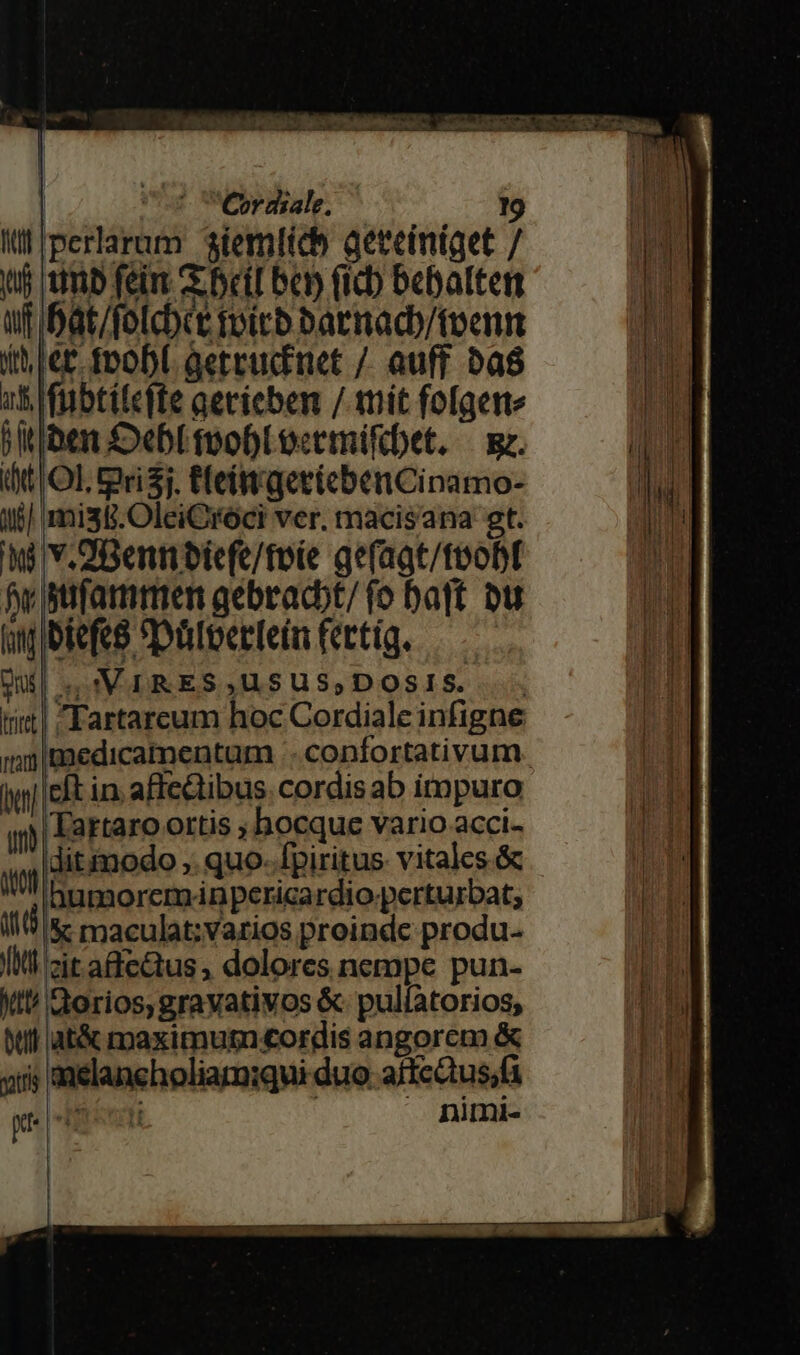 Cordiale. 19
perlarum ziemlich gereiniget /
und sein Theil bey sich behalten
hat/solcher wird darnach/wenn
er wohl getrucknet / auff das
subtileste gerieben / mit folgen⸗
den Oehl wohl vermischet. ꝛc.
Ol. Pri ʒj. klein gerieben Cinamo-
mi ʒß. Olei Croci ver. macis ana gt.
v. Wenn diese/wie gesagt/wohl
zusammen gebracht/ so hast du
dieses Pülverlein fertig.
VIRES, USUS, DOSIS.
Tartareum hoc Cordiale insigne
medicamentum confortativum
est in affectibus cordis ab impuro
Tartaro ortis ; hocque vario acci-
dit modo, quo spiritus vitales &
humorem in pericardio perturbat,
& maculat; varios proinde produ-
cit affectus, dolores nempe pun-
ctorios, gravativos & pulsatorios,
at & maximum cordis angorem &
melancholiam; qui duo affectus, si
nimi-